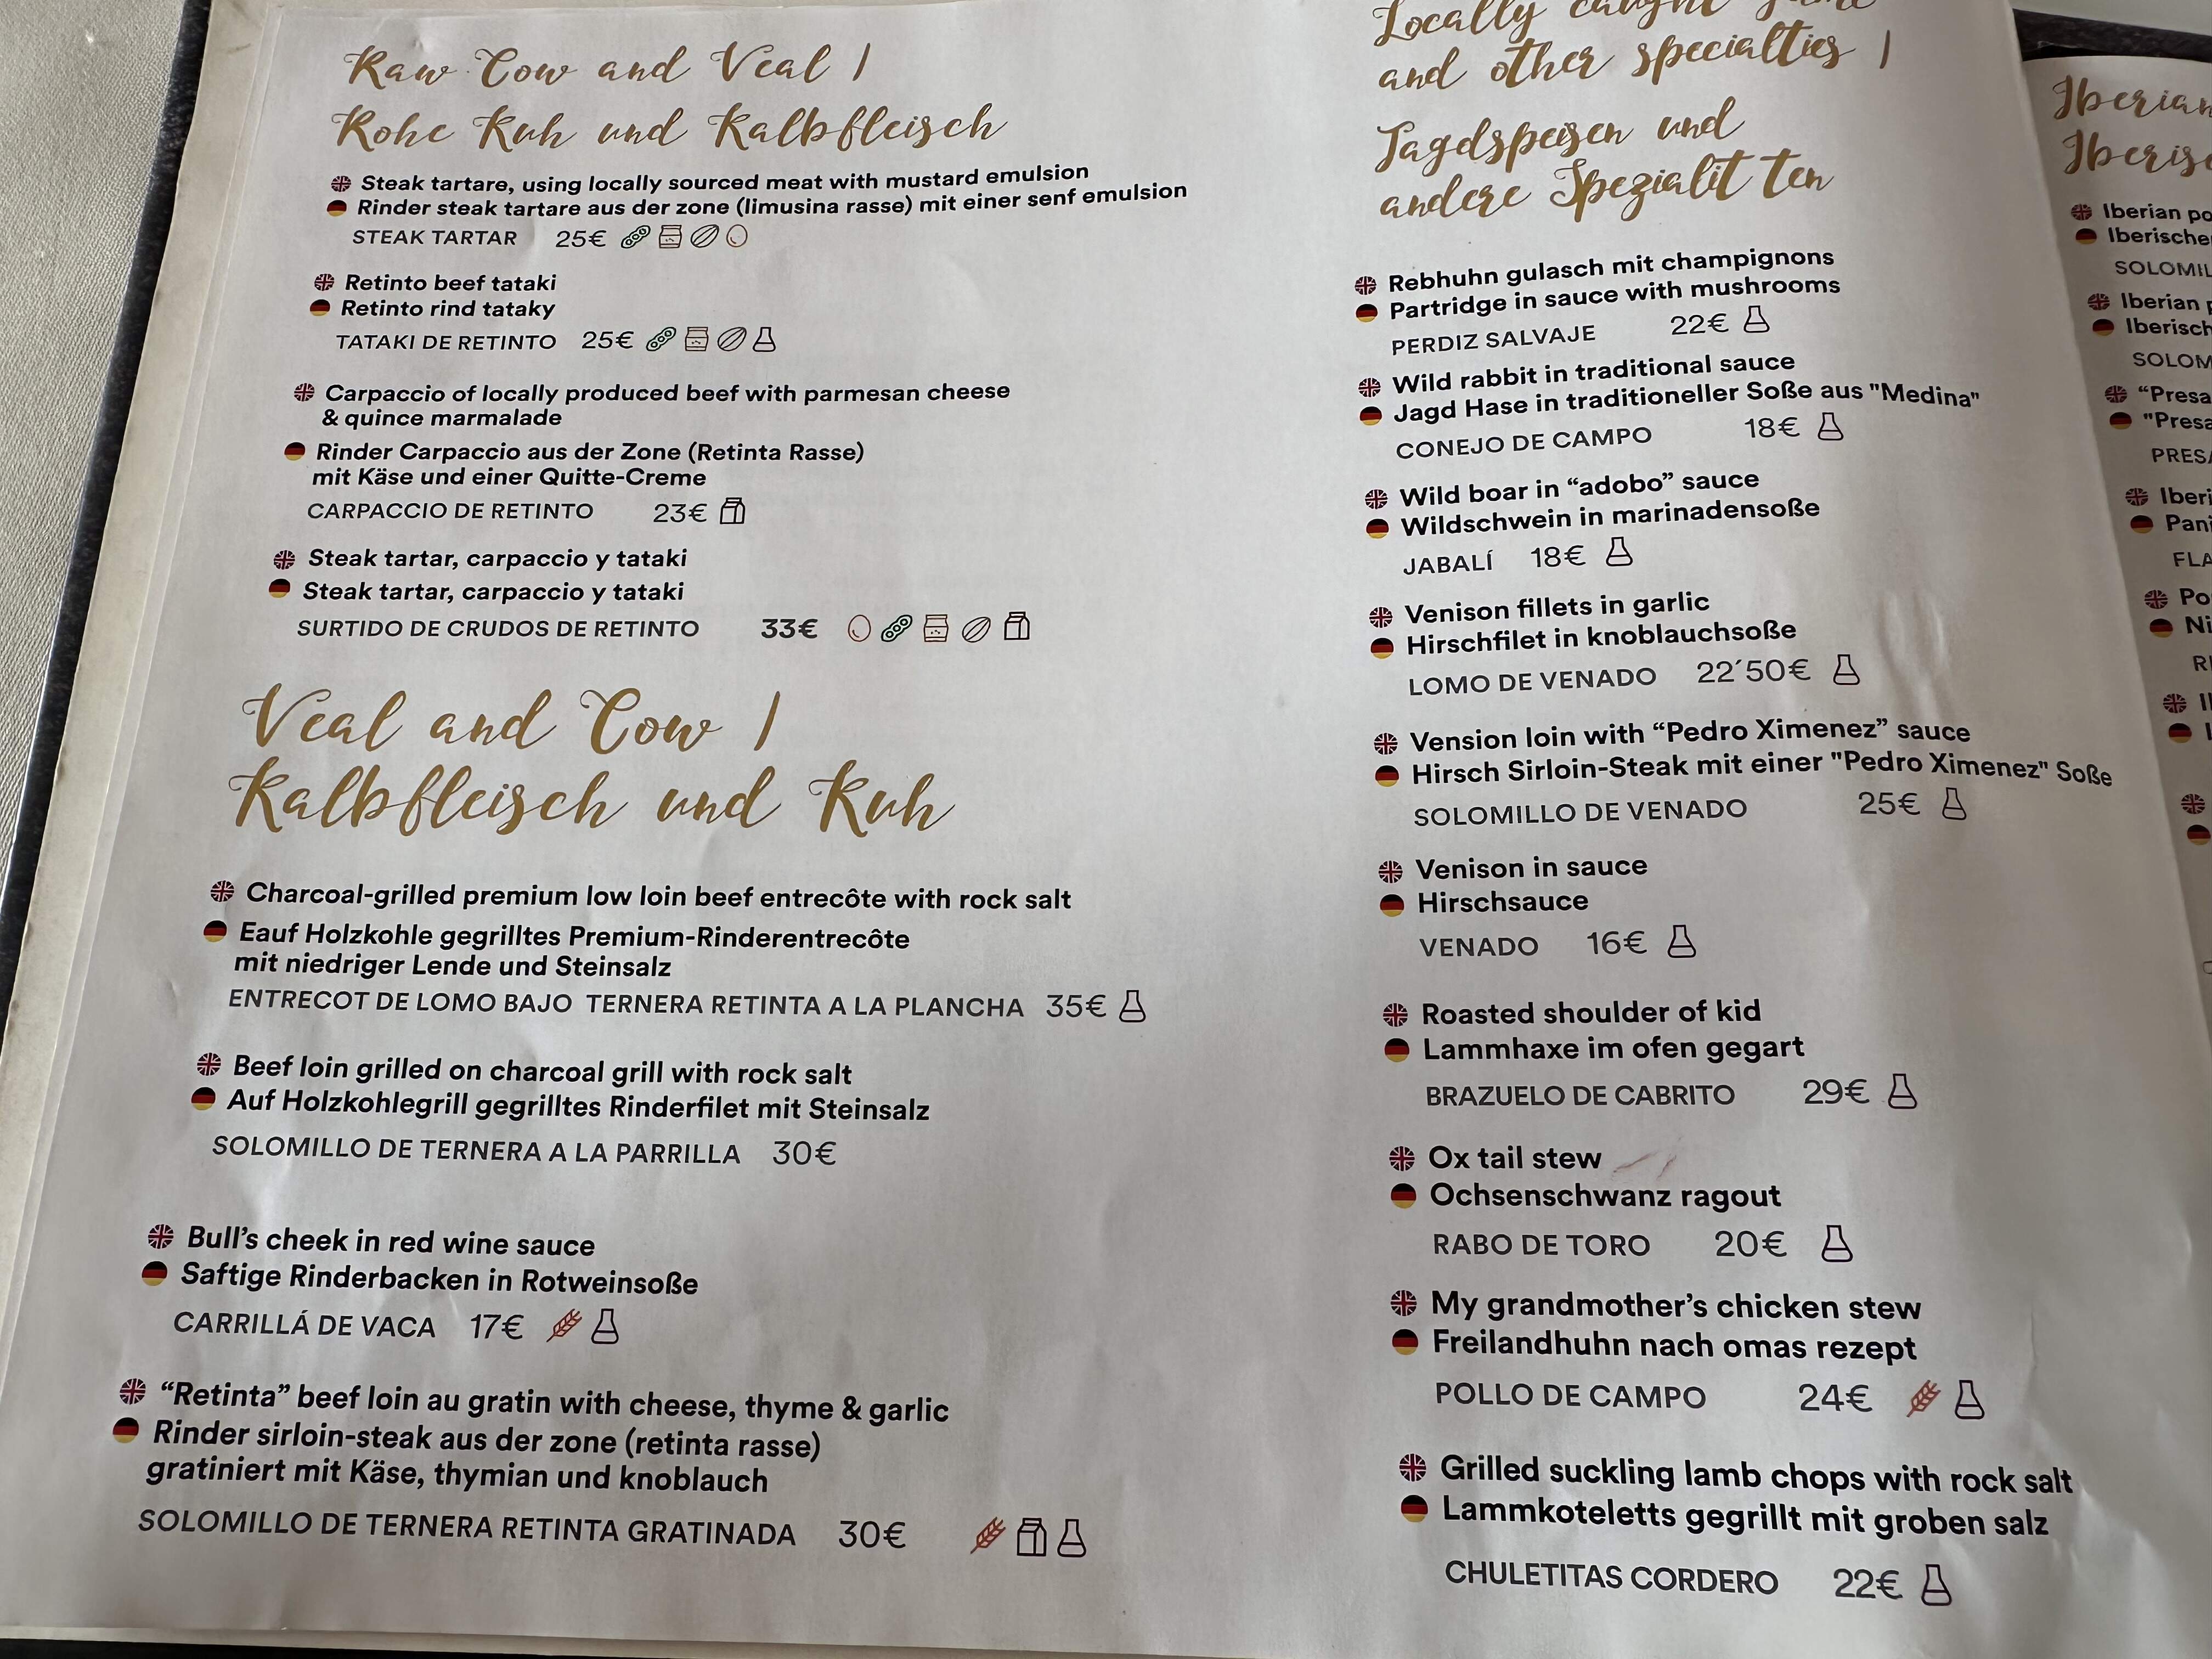 Raw Cow and Veal |
Rohe Kuh und Kalbfleisch
Steak tartare, using locally sourced meat with mustard emulsion
Rinder steak tartare aus der zone (limusina rasse) mit einer senf emulsion
STEAK TARTAR 25€
Retinto beef tataki
Retinto rind tataky
TATAKI DE RETINTO 25€
Carpaccio of locally produced beef with parmesan cheese
& quince marmalade
Rinder Carpaccio aus der Zone (Retinta Rasse)
mit Käse und einer Quitte-Creme
CARPACCIO DE RETINTO 23€
Steak tartar, carpaccio y tataki
Steak tartar, carpaccio y tataki
SURTIDO DE CRUDOS DE RETINTO 33€
Veal and Cow |
Kalbfleisch und Kuh
Charcoal-grilled premium low loin beef entrecôte with rock salt
Eauf Holzkohle gegrilltes Premium-Rinderentrecôte
mit niedriger Lende und Steinsalz
ENTRECOT DE LOMO BAJO TERNERA RETINTA A LA PLANCHA 35€
Beef loin grilled on charcoal grill with rock salt
Auf Holzkohlegrill gegrilltes Rinderfilet mit Steinsalz
SOLOMILLO DE TERNERA A LA PARRILLA 30€
Bull's cheek in red wine sauce
Saftige Rinderbacken in Rotweinsoße
CARRILLÁ DE VACA 17€
“Retinta” beef loin au gratin with cheese, thyme & garlic
Rinder sirloin-steak aus der zone (retinta rasse)
gratiniert mit Käse, thymian und knoblauch
SOLOMILLO DE TERNERA RETINTA GRATINADA 30€
Locally caught game
and other specialties |
Jagdspeisen und
andere Spezialit ten
Rebhuhn gulasch mit champignons
Partridge in sauce with mushrooms
PERDIZ SALVAJE 22€
Wild rabbit in traditional sauce
Jagd Hase in traditioneller Soße aus "Medina"
CONEJO DE CAMPO 18€
Wild boar in “adobo” sauce
Wildschwein in marinadensoße
JABALÍ 18€
Venison fillets in garlic
Hirschfilet in knoblauchsoße
LOMO DE VENADO 22´50€
Vension loin with “Pedro Ximenez” sauce
Hirsch Sirloin-Steak mit einer "Pedro Ximenez" Soße
SOLOMILLO DE VENADO 25€
Venison in sauce
Hirschsauce
VENADO 16€
Roasted shoulder of kid
Lammhaxe im ofen gegart
BRAZUELO DE CABRITO 29€
Ox tail stew
Ochsenschwanz ragout
RABO DE TORO 20€
My grandmother's chicken stew
Freilandhuhn nach omas rezept
POLLO DE CAMPO 24€
Grilled suckling lamb chops with rock salt
Lammkoteletts gegrillt mit groben salz
CHULETITAS CORDERO 22€
Iberian
Iberian
Iberischer
Iberian
“Presa
"Presa